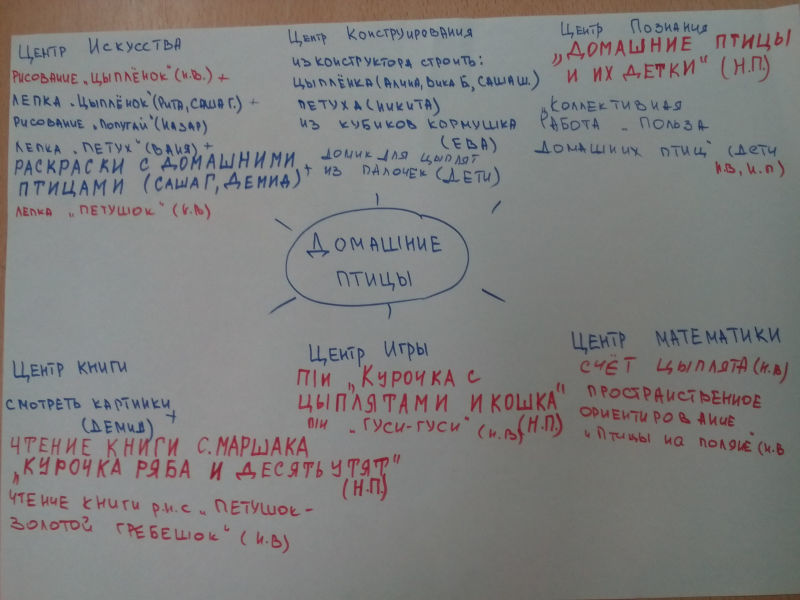 Центр Искусства
Рисование „Цыплёнок" (И.В.) +
Лепка „Цыплёнок" (Рита, Саша Г.) +
Рисование „Попугай" (Назар)
Лепка „Петух" (Ваня) +
Раскраски с домашними
птицами (Саша Г, Демид) +
Лепка „Петушок" (И.В)
Центр Конструирования
Из конструктора строить:
Цыплёнка (Алина, Вика Б, Саша Ш.)
Петуха (Никита)
Из кубиков кормушка
(Ева)
Домик для цыплят
из палочек (Дети)
Центр Познания
„Домашние птицы
и их детки" (Н.П.)
„Коллективная
работа „Польза
домашних птиц" (Дети
И.В, Н.П)
Домашние
птицы
Центр книги
Смотреть картинки +
(Демид)
Чтение книги С. Маршака
„Курочка Ряба и десять утят"
(Н.П)
Чтение книги р.н.с „Петушок-
золотой гребешок" (И.В)
Центр Игры
П/и „Курочка с
цыплятами и кошка"
(Н.П.)
П/и „Гуси-гуси" (И.В)
Центр математики
Счёт цыплята (И.В)
Пространственное
ориентирование
„Птицы на поляне" (И.В